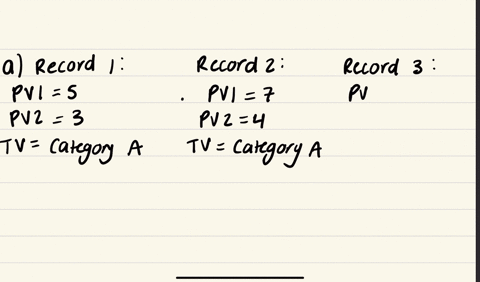 a) Record 1:
PV1 = 5
PV2 = 3
TV = Category A
Record 2:
. PV1 = 7
PV2 = 4
TV = Category A
Record 3:
PV